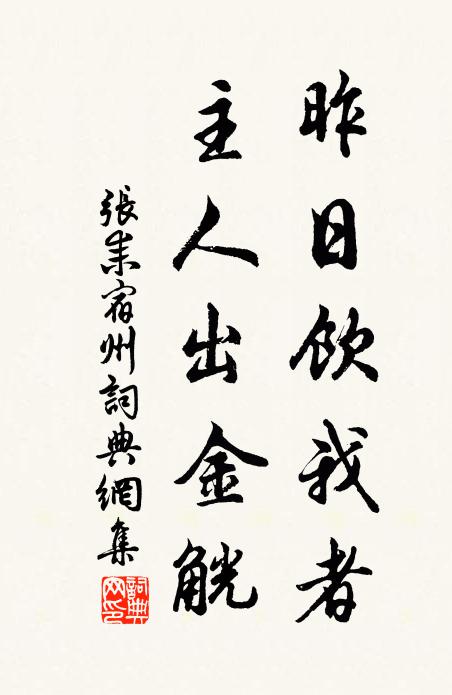 昨日飲我者
主人出金觥
張耒宿州詞典網集
詞典网印